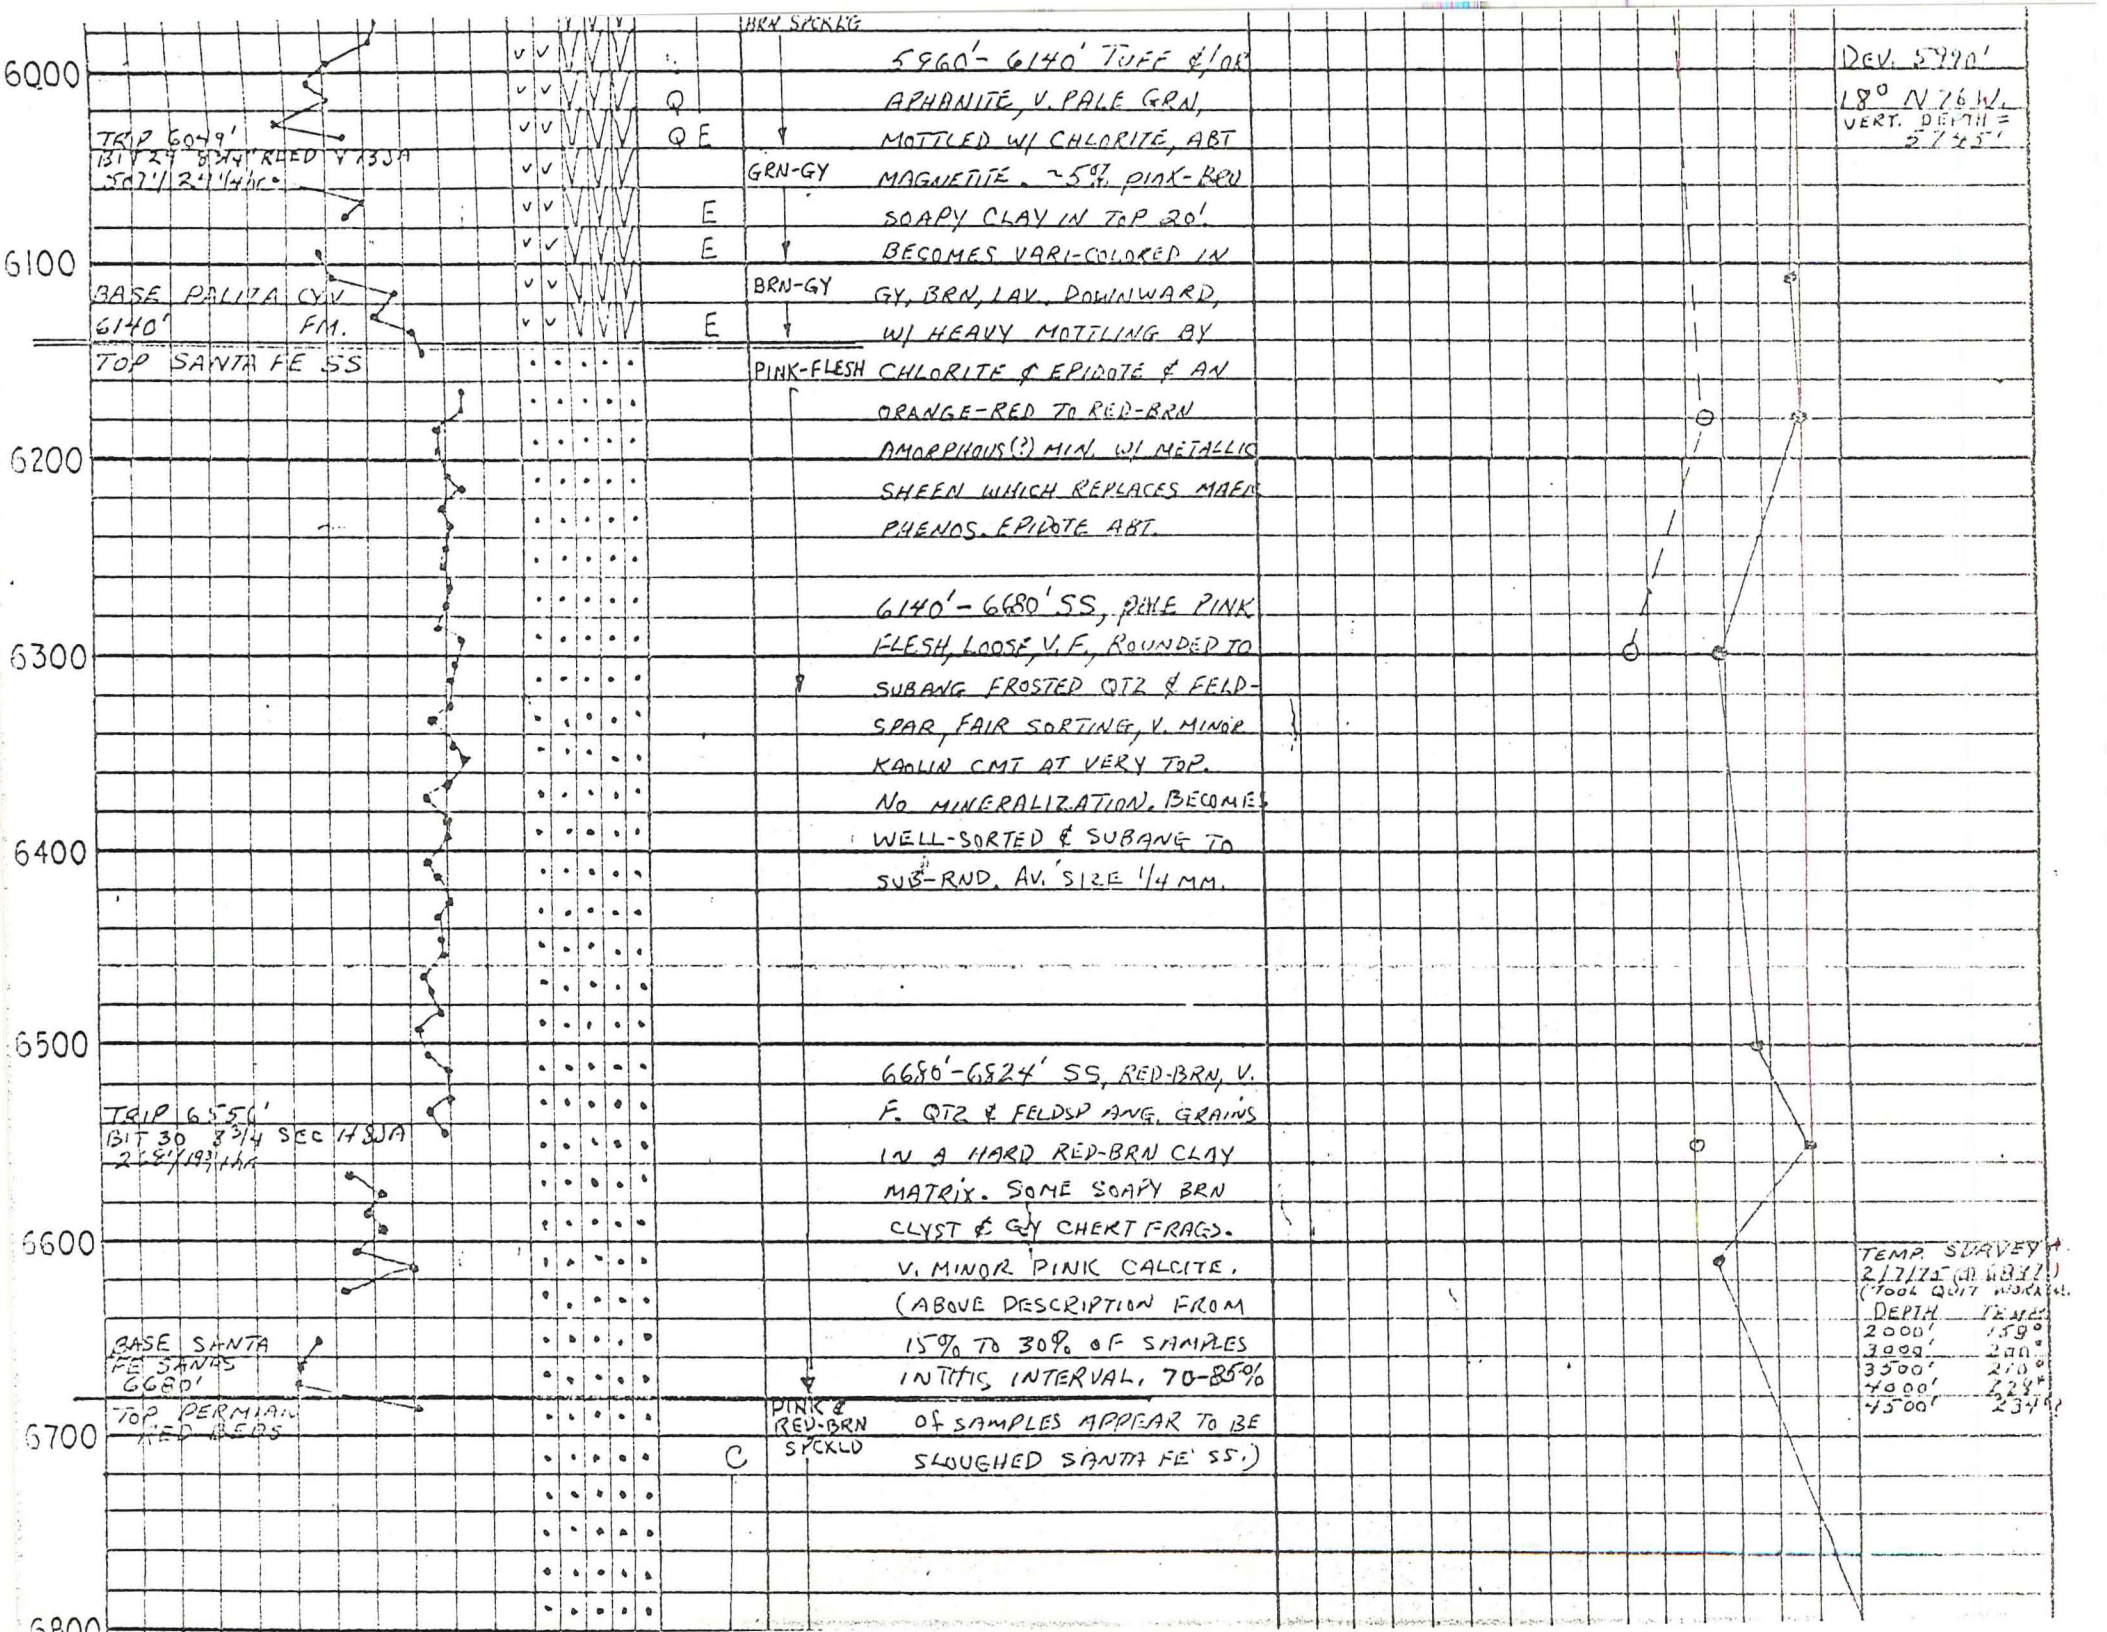 BRN SPCKLG
6000
6100
6200
6300
6400
6500
6600
6700
6800
TRIP 6049'
BIT 29 8 3/4" REED
BASE PALIZA CYN.
6140' FM.
TOP SANTA FE SS
TRIP 6556'
BIT 30 8 3/4 SEC H8JA
BASE SANTA
FE SANDS
6680'
TOP PERMIAN
RED BEDS
Q
Q E
E
E
E
C
GRN-GY
BRN-GY
PINK-FLESH
PINK &
RED-BRN
SPCKLD
5960'- 6140' TUFF &/OR
APHANITE, V. PALE GRN,
MOTTLED W/ CHLORITE, ABT
MAGNETITE. ~5% PINK-BRN
SOAPY CLAY IN TOP 20'.
BECOMES VARI-COLORED IN
GY, BRN, LAV. DOWNWARD,
W/ HEAVY MOTTLING BY
CHLORITE & EPIDOTE & AN
ORANGE-RED TO RED-BRN
AMORPHOUS(?) MIN. W/ METALLIC
SHEEN WHICH REPLACES MAFIC
PHENOS. EPIDOTE ABT.
6140'-6680' SS, PALE PINK
FLESH, LOOSE, V. F., ROUNDED TO
SUBANG FROSTED QTZ & FELD-
SPAR, FAIR SORTING, V. MINOR
KAOLIN CMT AT VERY TOP.
NO MINERALIZATION. BECOMES
WELL-SORTED & SUBANG TO
SUB-RND. AV. SIZE 1/4 MM.
6680'-6824' SS, RED-BRN, V.
F. QTZ & FELDSP ANG. GRAINS
IN A HARD RED-BRN CLAY
MATRIX. SOME SOAPY BRN
CLYST & GY CHERT FRAGS.
V. MINOR PINK CALCITE.
(ABOVE DESCRIPTION FROM
15% TO 30% OF SAMPLES
IN THIS INTERVAL, 70-85%
OF SAMPLES APPEAR TO BE
SLOUGHED SANTA FE SS.)
DEV. 5990'
18° N 76 W.
VERT. DEPTH =
5745'
TEMP. SURVEY
2/7/75 @
(TOOL QUIT WORKING
DEPTH TEMP.
2000' 159°
3000' 200°
3500' 210°
4000' 228°
4500' 234°